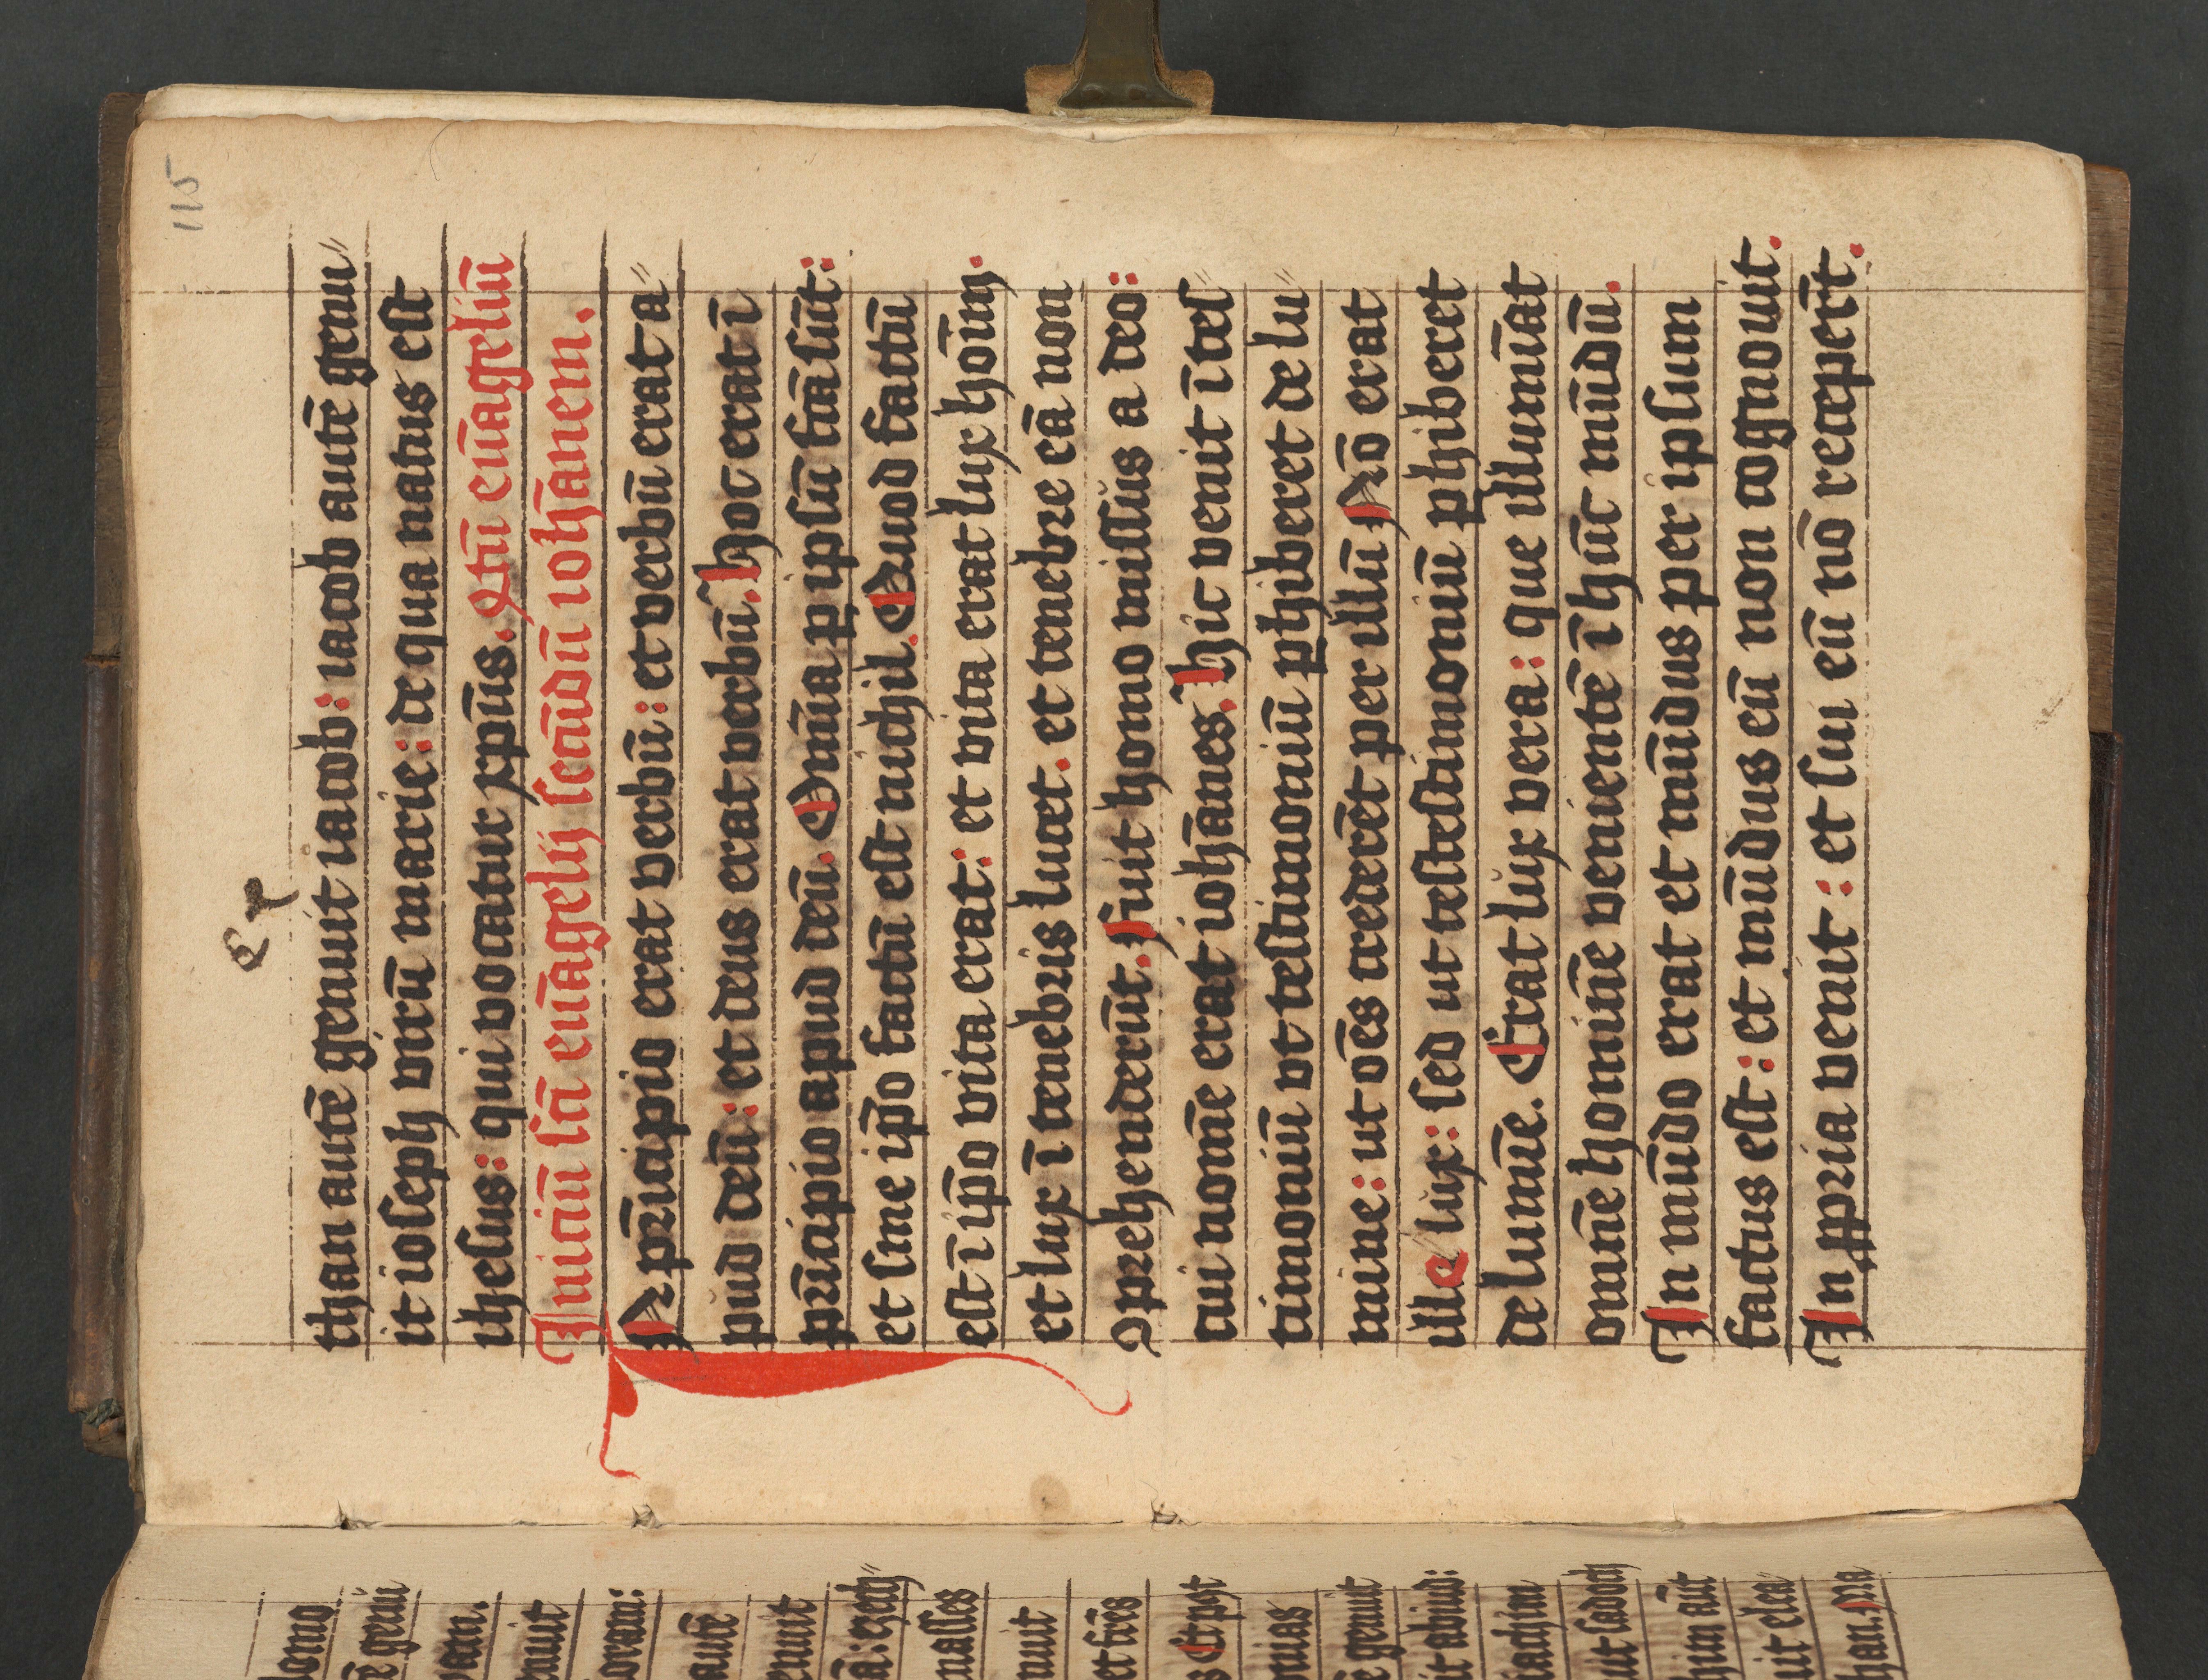 115
than autē genuit iacob: iacob autē genu〃
it ioseph virū marie: de qua natus est
ihesus: qui vocatur xpūs. Aliū euāgeliū
Iniciū sc̄i euāgelij secūdū iohānem.
IN prīcipio erat verbū: et verbū erat a〃
pud deū: et deus erat verbū. Hoc erat ī
prīcipio apud deū. Omīa ꝑ ipsū fcā sūt:
et sine ip̄o factū est nichil. Quod factū
est ī ip̄o vita erat: et vita erat lux hoīm.
et lux ī tenebris lucet. et tenebre eā non
ꝯprehenderūt. Fuit homo missus a deo:
cui nomē erat iohānes. Hic venit ī tes〃
timoniū vt testimoniū ꝑhiberet de lu〃
mine: ut oēs crederēt per illū. Nō erat
ille lux: sed ut testestimoniū ꝑhiberet
de lumīe. Erat lux vera: que illumīat
omnē hominē venientē ī hūc mūdū.
In mūdo erat et mūdus per ipsum
factus est: et mūdus eū non cognouit.
In ꝓpria venit: et sui eū nō receperūt.